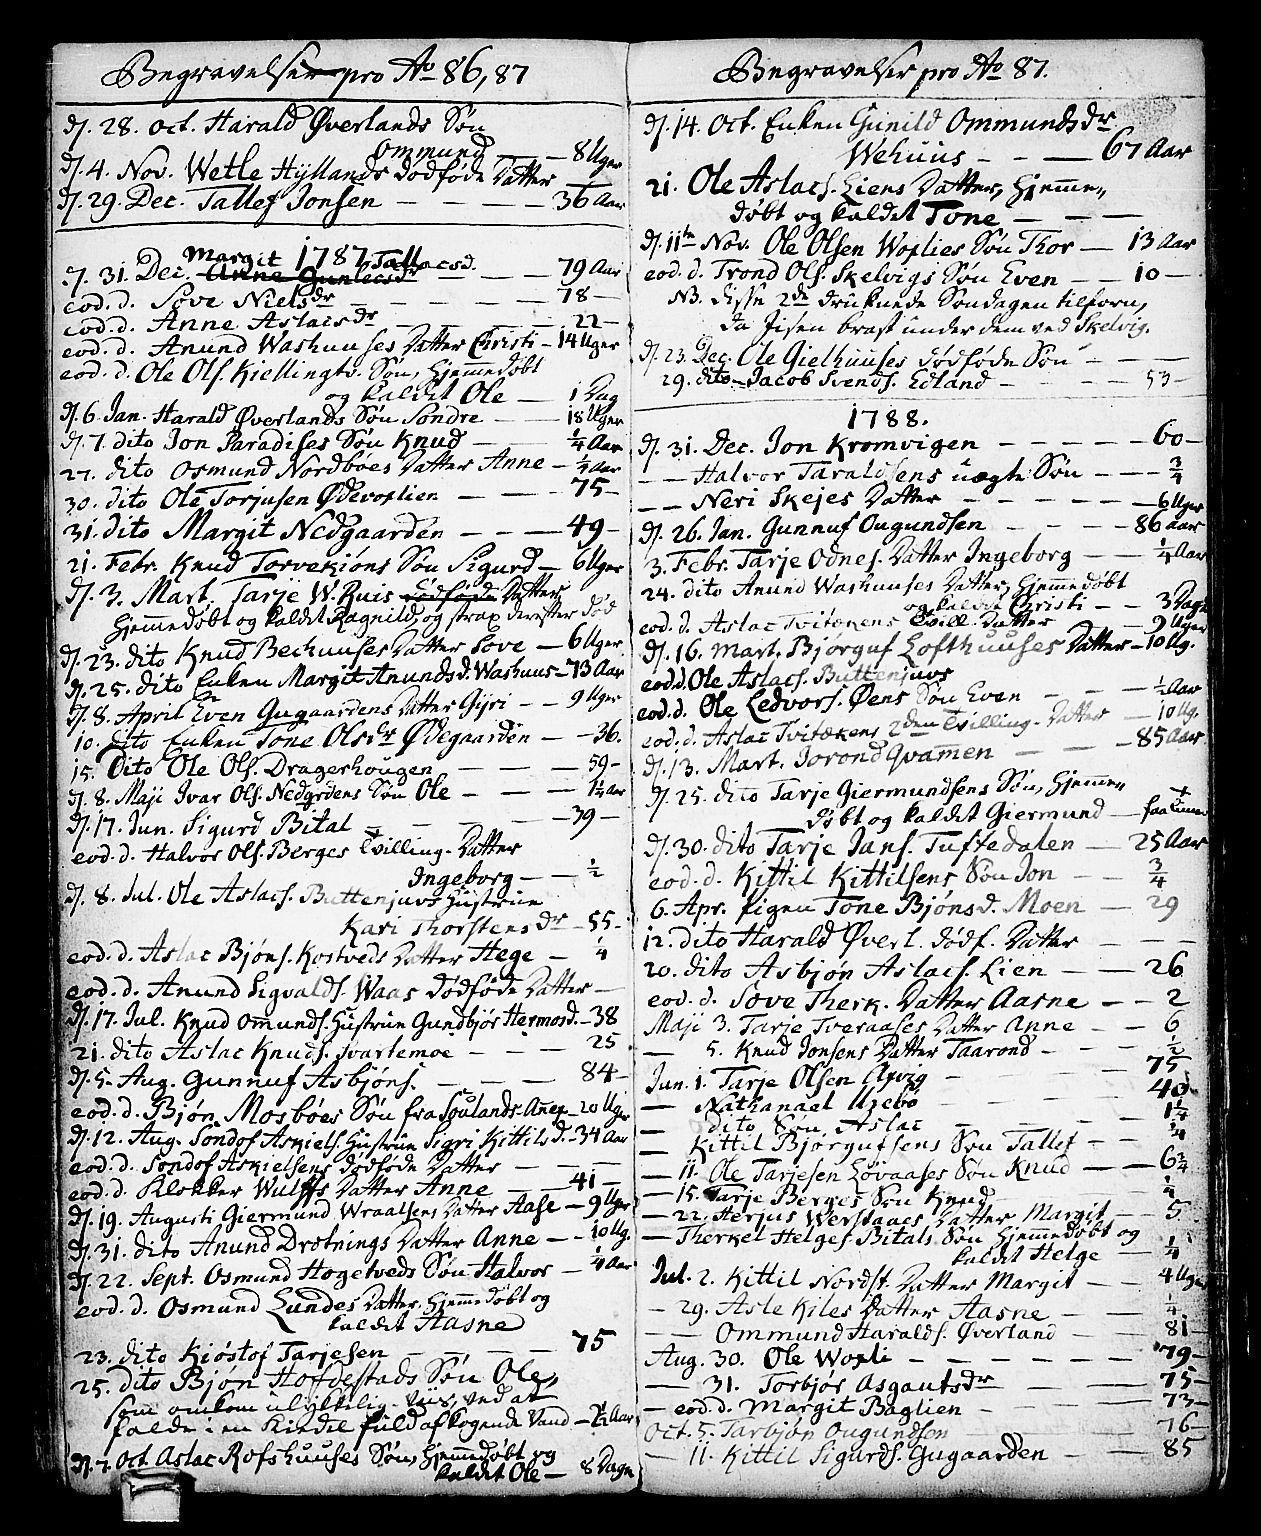 Begravelser pro Ao 86, 87
D. 28. Oct. Harald Øverlands Søn
Ommund — 8 Uger
D. 4. Nov. Wetle Hyllands dødføde Datter
D. 29. Dec. Tallef Jonsen — — — — 36 Aar
1787.
D. 31. Dec. Margit Tallacsd. — 79 Aar
eod. d. Søve Nielsdr — — — — 78 —
eod. d. Anne Aslacsdr — — — 22 —
eod. d. Anund Washuuses Datter Christi — 14 Uger
eod. d. Ole Ols. Kiellingtv. Søn, hjemmedøbt
og kaldet Ole — 1 Dag
D. 6. Jan. Harald Øverlands Søn Søndre — 18 Uger
D. 7. dito Jon Paradises Søn Knud — ¼ Aar
27. dito Osmund Nordbøes Datter Anne — ¼ Aar
30. dito Ole Torjusen Ødevoxlien — — — 75 —
31. dito Margit Nedgaarden — — — 49 —
21. Febr. Knud Torvekiøns Søn Sigurd — 6 Uger
D. 3. Mart. Tarje W. Ruis dødføde Datter
hjemmedøbt og kaldet Ragnild, og strax derefter død
D. 23. dito Knud Bechuuses Datter Søve — 6 Uger
D. 25. dito Enken Margit Anundsd. Washuus — 73 Aar
D. 8. April Even Gugaardens Datter Gyri — — 9 Uger
10. dito Enken Tone Olsdr Ødegaarden — — 36.
15. Dito Ole Ols. Dragerhougen — — — 59 —
D. 8. Maji Ivar Ols. Nedgrdens Søn Ole — — 1¼ Aar
D. 17. Jun. Sigurd Bital — — — — 39 —
eod. d. Halvor Ols. Berges Tvilling-Datter
Ingeborg — — ½
D. 8. Jul. Ole Aslacs. Buttenjuvs Hustrue
Kari Thorstensdr — 55 —
eod. d. Aslac Bjøns. Kostveds Datter Hege — ¼
eod. d. Anund Sigvalds. Waas dødføde Datter —
D. 17. Jul. Knud Omunds. Hustrue Gundbjør Hermosd. — 38
21. dito Aslac Knuds. Svartemoe — — — 25
D. 5. Aug. Gunnuf Asbjøns. — — — — 84 —
eod. d. Bjøn Mosbøes Søn fra Soulands Anex — 20 Uger
D. 12. Aug. Søndof Askiels. Hustrue Sigri Kittilsd. — 34 Aar
eod. d. Søndof Askielsens dødføde Datter — — —
eod. d. Klokker Wulffs Datter Anne — — 41 —
D. 19. Augusti Giermund Wraalsens Datter Aase — 9 Uger
D. 31. dito Anund Drøtnings Datter Anne — — 10 Ug.
D. 22. Sept. Osmund Hogetveds Søn Halvor — ¼ Aar
eod. d. Osmund Lundes Datter hjemmedøbt og
kaldet Aasne
23. dito Kiøstof Tarjesen — — — — 75
25. dito Bjøn Hofdestads Søn Ole,
som omkom ulykkelig-viis, ved at
falde i en Kiedel fuld af kogende Vand — Aar
D. 7. Oct. Aslac Rofshuuses Søn, hjemmedøbt og
kaldet Ole — 8 Dage
Begravelser pro Ao 87.
D. 14. Oct. Enken Gunild Ommundsdr
Wehuus — — — 67 Aar
21. Ole Aslacs. Liens Datter, hjemme-
døbt og kaldet Tone — — —
D. 11te Nov. Ole Olsen Woxlies Søn Thor — 13 Aar
eod. d. Trond Ols. Skelvigs Søn Even — — 10 —
NB. disse 2de druknede Søndagen tilforn,
da Jisen brast under dem ved Skelvig.
D. 23. Dec. Ole Gielhuuses dødføde Søn — — —
29. dito — Jacob Svends. Edland — — — — 53 —
1788.
D. 31. Dec. Jon Kromvigen — — — — 60 —
— — Halvor Taraldsens uægte Søn — — ¾
— — Neri Skejes Datter — — — — 6 Uger
D. 26. Jan. Gunnuf Ougundsen — — — 86 aar
3. Febr. Tarje Odnes. Datter Ingeborg — — ¼ Aar
24. dito Anund Washuuses Datter, hjemmedøbt
og kaldet Christi — — 3 Dage
eod. d. Aslac Tvitækens Tvill. Datter — — 9 Uger
D. 16. Mart. Bjørguf Lofthuuses Datter — 10 Ug.
eod. d. Ole Aslacs. Buttenjuvs
eod. d. Ole Ledvors. Øens Søn Even — — — ½ Aar
eod. d. Aslac Tvitækens 2den Tvilling-Datter — 10 Ug.
D. 13. Mart. Jorond Qvamen — — — 85 Aar
D. 25. dito Tarje Giermundsens Søn, hjemme-
døbt og kaldet Giermund — faa Timer
D. 30. dito Tarje Jans. Tuftedalen — — 25 Aar
eod. d. Kittil Kittilsens Søn Jon — — ¾
6. Apr. Pigen Tone Bjønsd. Moen — — 29
12. dito Harald Øverl. dødf. Datter — — —
20. dito Asbjøn Aslacs. Lien — — 26
eod. d. Søve Therk. Datter Aasne — — 2
Maji 3. Tarje Tveraases Datter Anne — — 6
— 5. Knud Jonsens Datter Taarond — — — ½
Jun. 1. Tarje Olsen Arvig — — — — 75
— Nathanael Uzebø — — — — 40 —
— dito Søn Aslac — — — — 1¼
— Kittil Bjørgufsens Søn Tallef — — ¼
— 11. Ole Tarjesen Løvaases Søn Knud — — 6¾
— 15. Tarje Berges Søn Knud — — — ¼
— 22. Herjus Werstaaes Datter Margit — 5
— Therkel Helges. Bitals Søn hjemmedøbt og
kaldet Helge — ¼
Jul. 2. Kittil Nordst. Datter Margit — 4 Uger
— 29. Asle Kiles Datter Aasne — — ¼
— — Ommund Haralds. Øverland — — 81 —
Aug. 30. Ole Woxli — — — — — 79 —
— 31. Torbjør Asgautsdr — — — 75 —
— eod. d. Margit Baglien — — — 73 —
Oct. 5. Tarbjøn Ougundsen — — — 76
— 11. Kittil Sigurds. Gugaarden — — 85